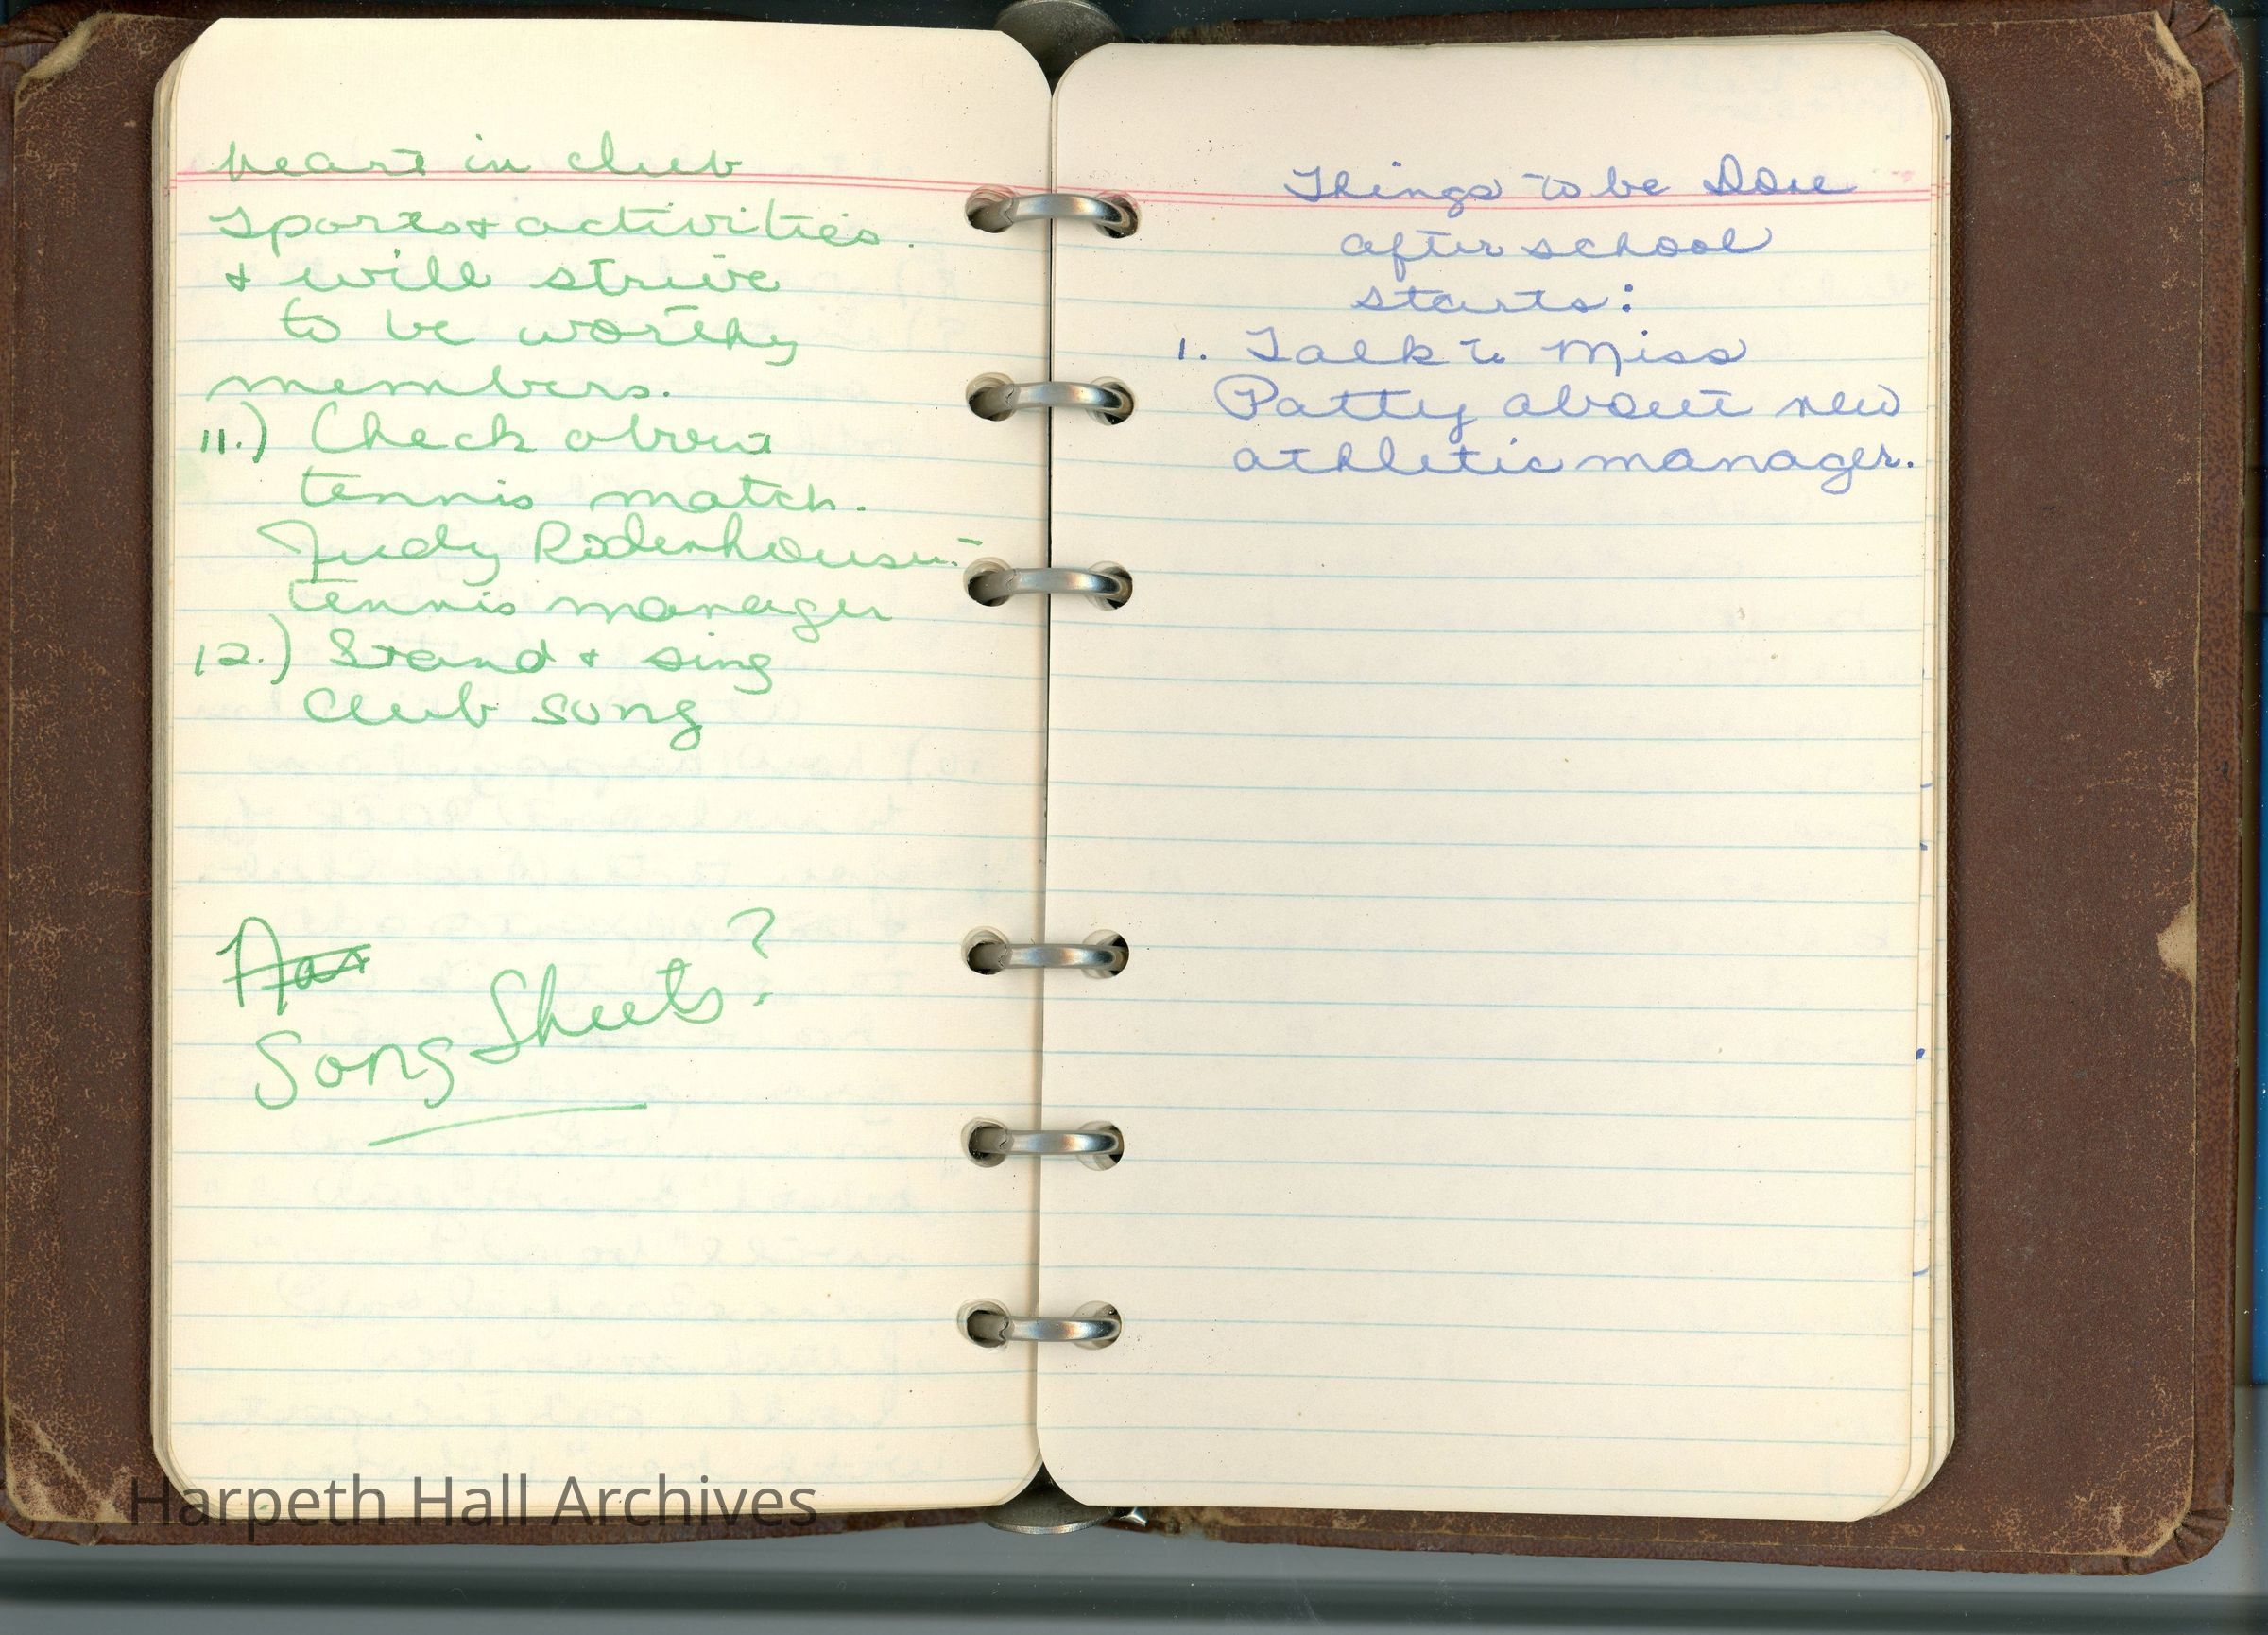 heart in club
sports & activities.
& will strive
to be worthy
members.
11.) Check about
tennis match.
Judy Roderhouser-
tennis manager
12.) Stand & sing
club song
Song Sheets?
Things to be Done
after school
starts:
1. Talk to Miss
Patty about new
athletic manager.
Harpeth Hall Archives